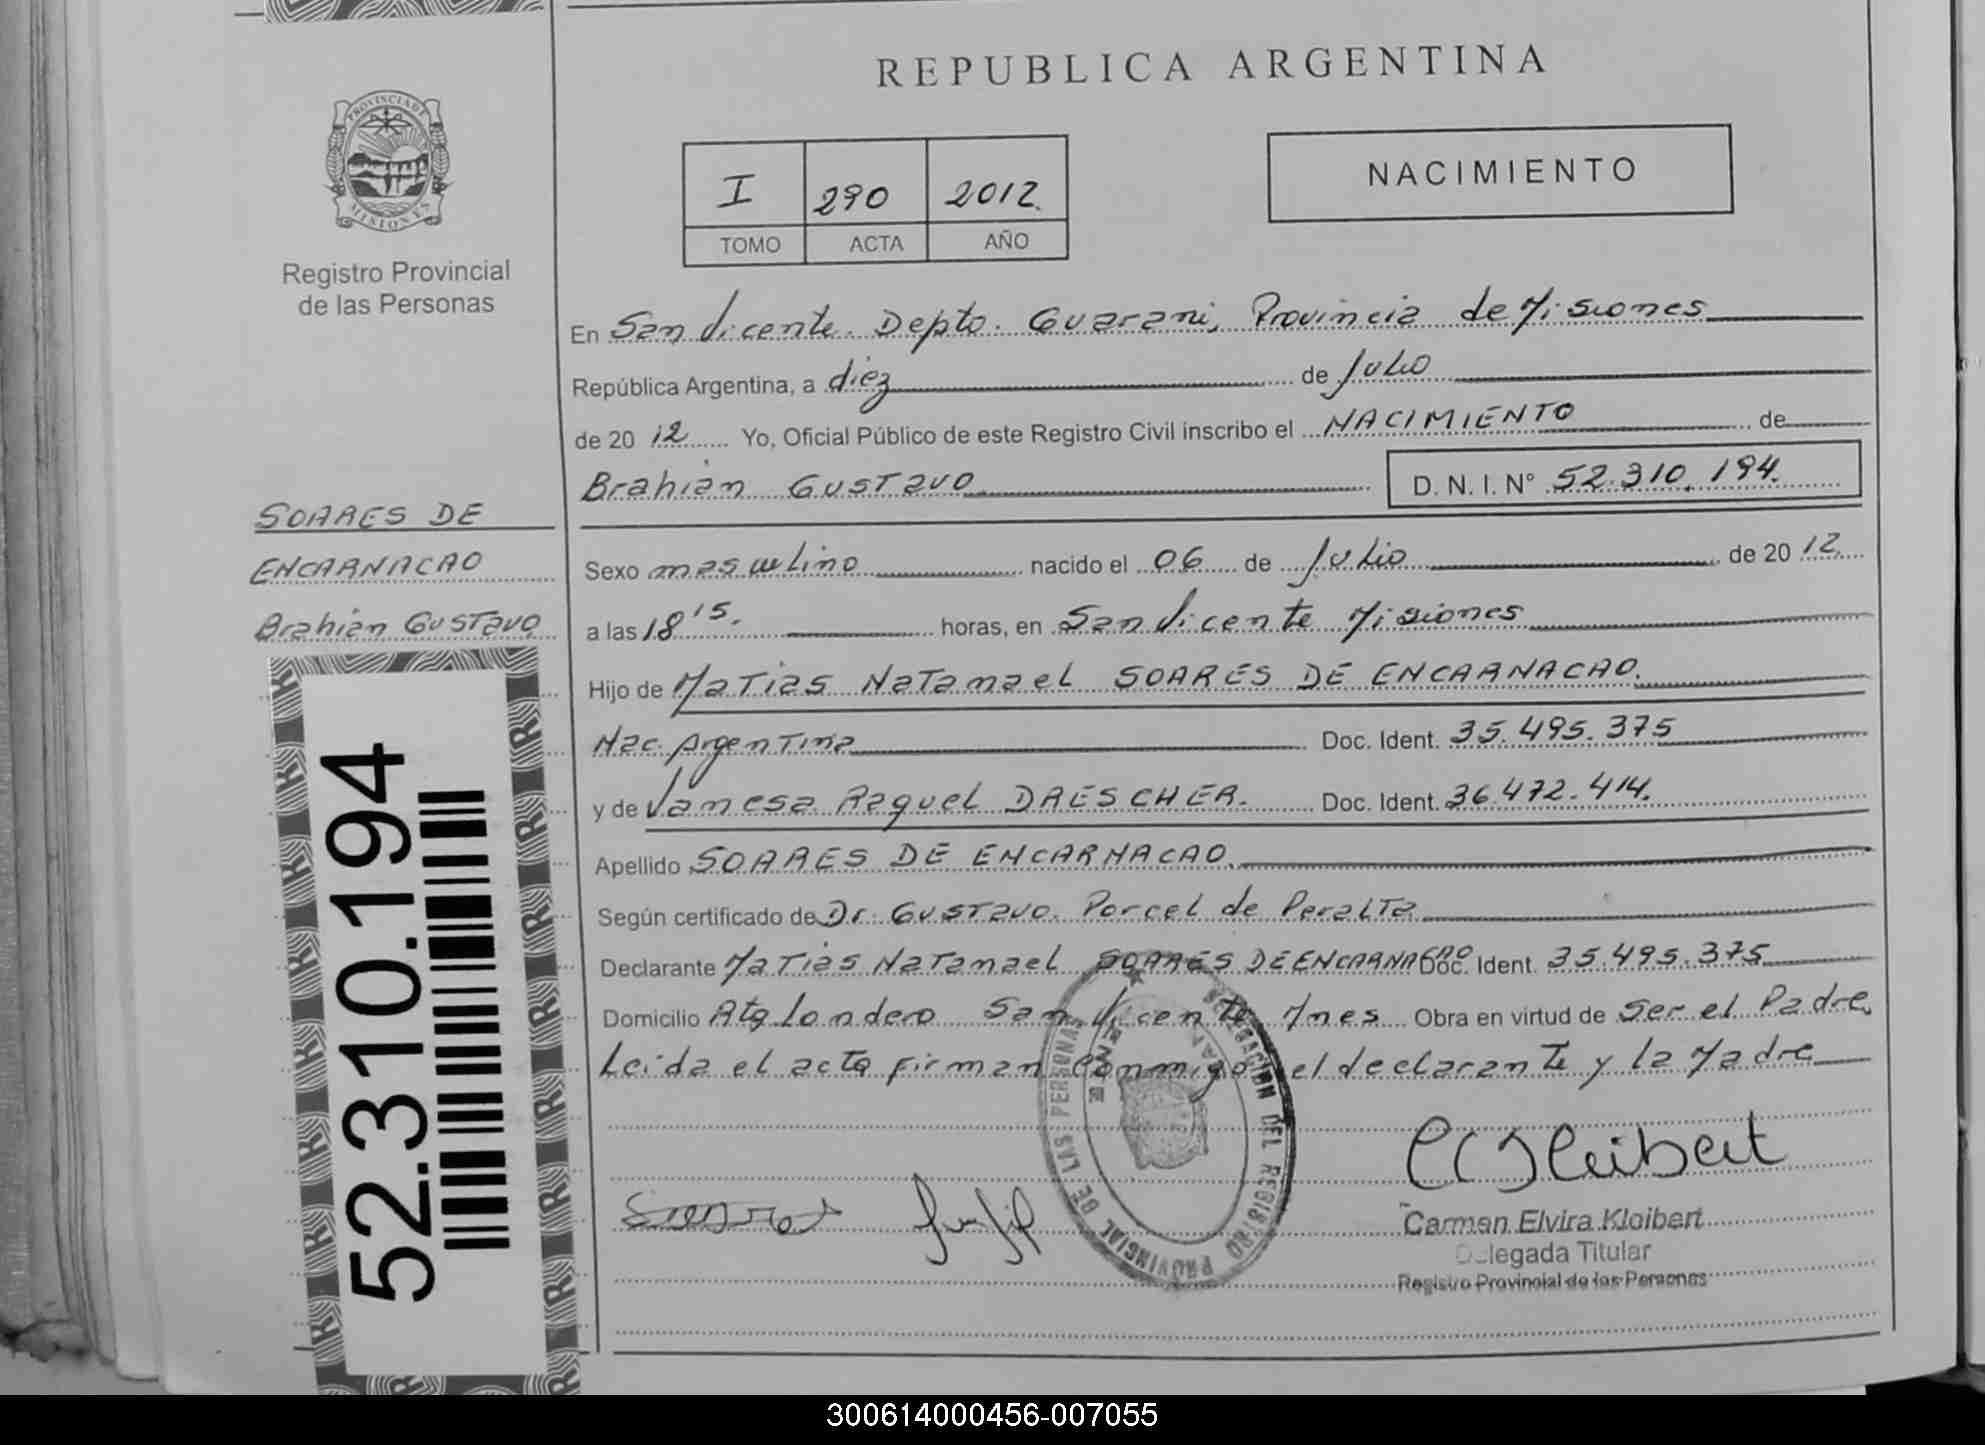 REPUBLICA ARGENTINA
PROVINCIA DE
MISIONES
Registro Provincial
de las Personas
I 290 2012
TOMO ACTA AÑO
NACIMIENTO
En San Vicente. Depto. Guarani, Provincia de Misiones
República Argentina, a diez de Julio
de 20 12 Yo, Oficial Público de este Registro Civil inscribo el NACIMIENTO de
Brahian Gustavo D. N. I. N° 52.310.194.
SOARES DE
ENCARNACAO
Brahian Gustavo
Sexo masculino nacido el 06 de Julio de 20 12
a las 18 15. horas, en San Vicente Misiones
Hijo de Matias Natanael SOARES DE ENCARNACAO.
Nac. Argentina Doc. Ident. 35.495.375
y de Vanesa Raquel DRESCHER. Doc. Ident. 36.472.414.
Apellido SOARES DE ENCARNACAO.
Según certificado de Dr. Gustavo Porcel de Peralta
Declarante Matias Natanael SOARES DE ENCARNACAO Doc. Ident. 35.495.375
Domicilio Londero San Vicente Mnes Obra en virtud de Ser el Padre,
Leida el acta firman conmigo el declarante y la Madre
52.310.194
DELEGACION DEL REGISTRO PROVINSIAL DE LAS PERSONAS
C C Kleibert
Carmen Elvira Kleibert
Delegada Titular
Registro Provincial de las Personas
300614000456-007055